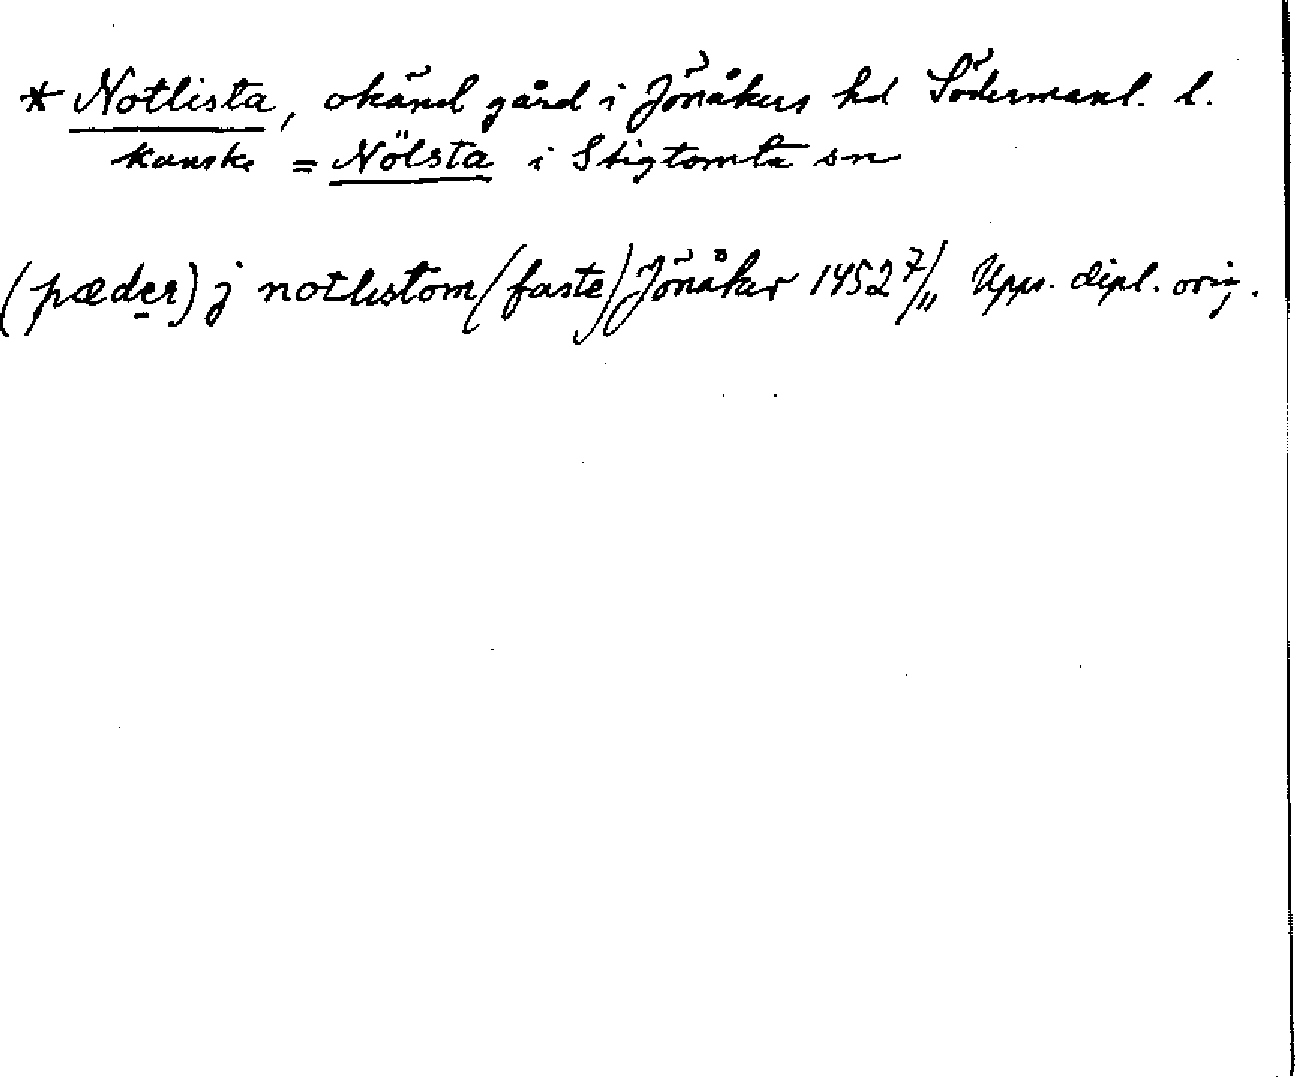 * Notlista, okänd gård i Jönåkers hd Södermanl. l.
kanske = Nölsta i Stigtomta sn
(pæder) j notlistom (faste) Jönåker 1452 7/11 Upps. dipl. orig.